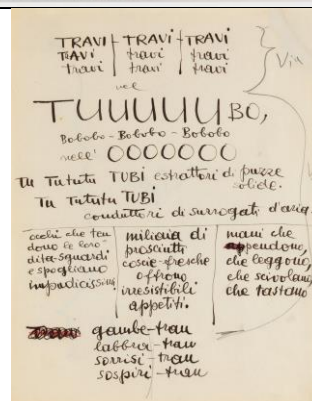 TRAVI - TRAVI - TRAVI
TRAVI travi travi
travi travi travi
nel
TUUUUUBO,
Bobobo - Bobobo - Bobobo
nell' OOOOOOO
Tu Tututu TUBI estrattori di puzze
solide.
Tu Tututu TUBI
conduttori di surrogati d'aria.
occhi che ten
dono le loro
dita-sguardi
e spogliano
impudicissimi
milioni di
prosciutti
coscie-fresche
offrono
irresistibili
appetiti.
mani che
appendono,
che leggono,
che scivolano,
che tastano
gambe-tran
labbra-tran
sorrisi-tran
sospiri-tran